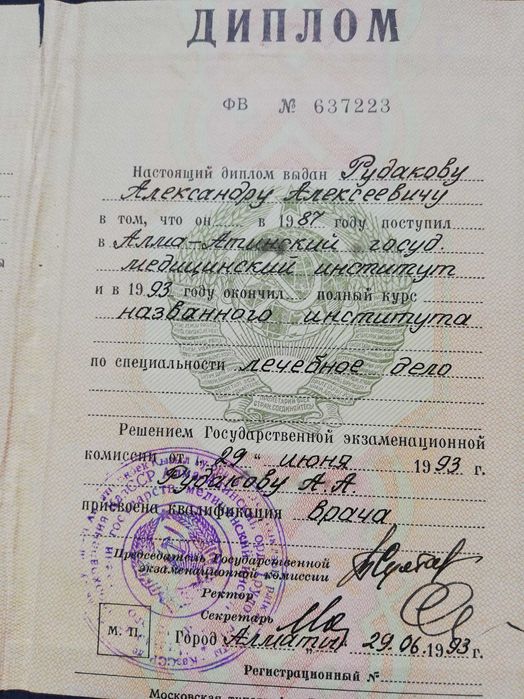 ДИПЛОМ
ФВ № 637223
Настоящий диплом выдан Рудакову
Александру Алексеевичу
в том, что он в 1987 году поступил
в Алма-Атинский госуд
медицинский институт
и в 1993 году окончил полный курс
названного института
по специальности лечебное дело
Решением Государственной экзаменационной
комиссии от „29" июня 1993 г.
Рудакову А. А.
присвоена квалификация врача
Председатель Государственной
экзаменационной комиссии
Ректор
Секретарь
М. П.
Город Алматы 29.06.1993 г.
Регистрационный №
Московская